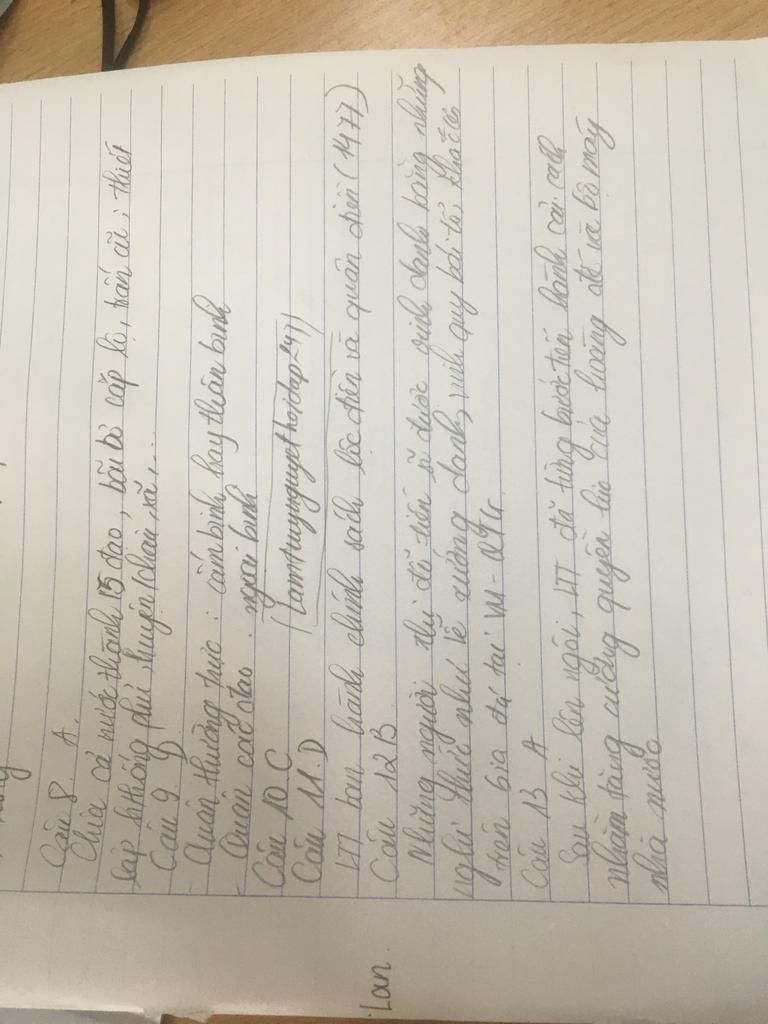 Câu 8. A.
Chia cả nước thành 15 đạo, bãi bỏ cấp lộ, trấn cũ; thiết
lập hthống phủ, huyện/châu, xã,...
Câu 9. D
Quân thường trực: cấm binh hay thân binh
Quân các đạo: ngoại binh
Câu 10. C
(lamtuynguyethoidap247)
Câu 11. D
LTT ban hành chính sách lộc điền và quân điền (1477)
Câu 12 B
Những người thi đỗ tiến sĩ được vinh danh bằng những
nghi thức như lễ xướng danh, vinh quy bái tổ, khắc tên
trên bia đá tại VM - QTG
Câu 13 A
Sau khi lên ngôi, LTT đã từng bước tiến hành cải cách
nhằm tăng cường quyền lực của hoàng đế và bộ máy
nhà nước
Lan